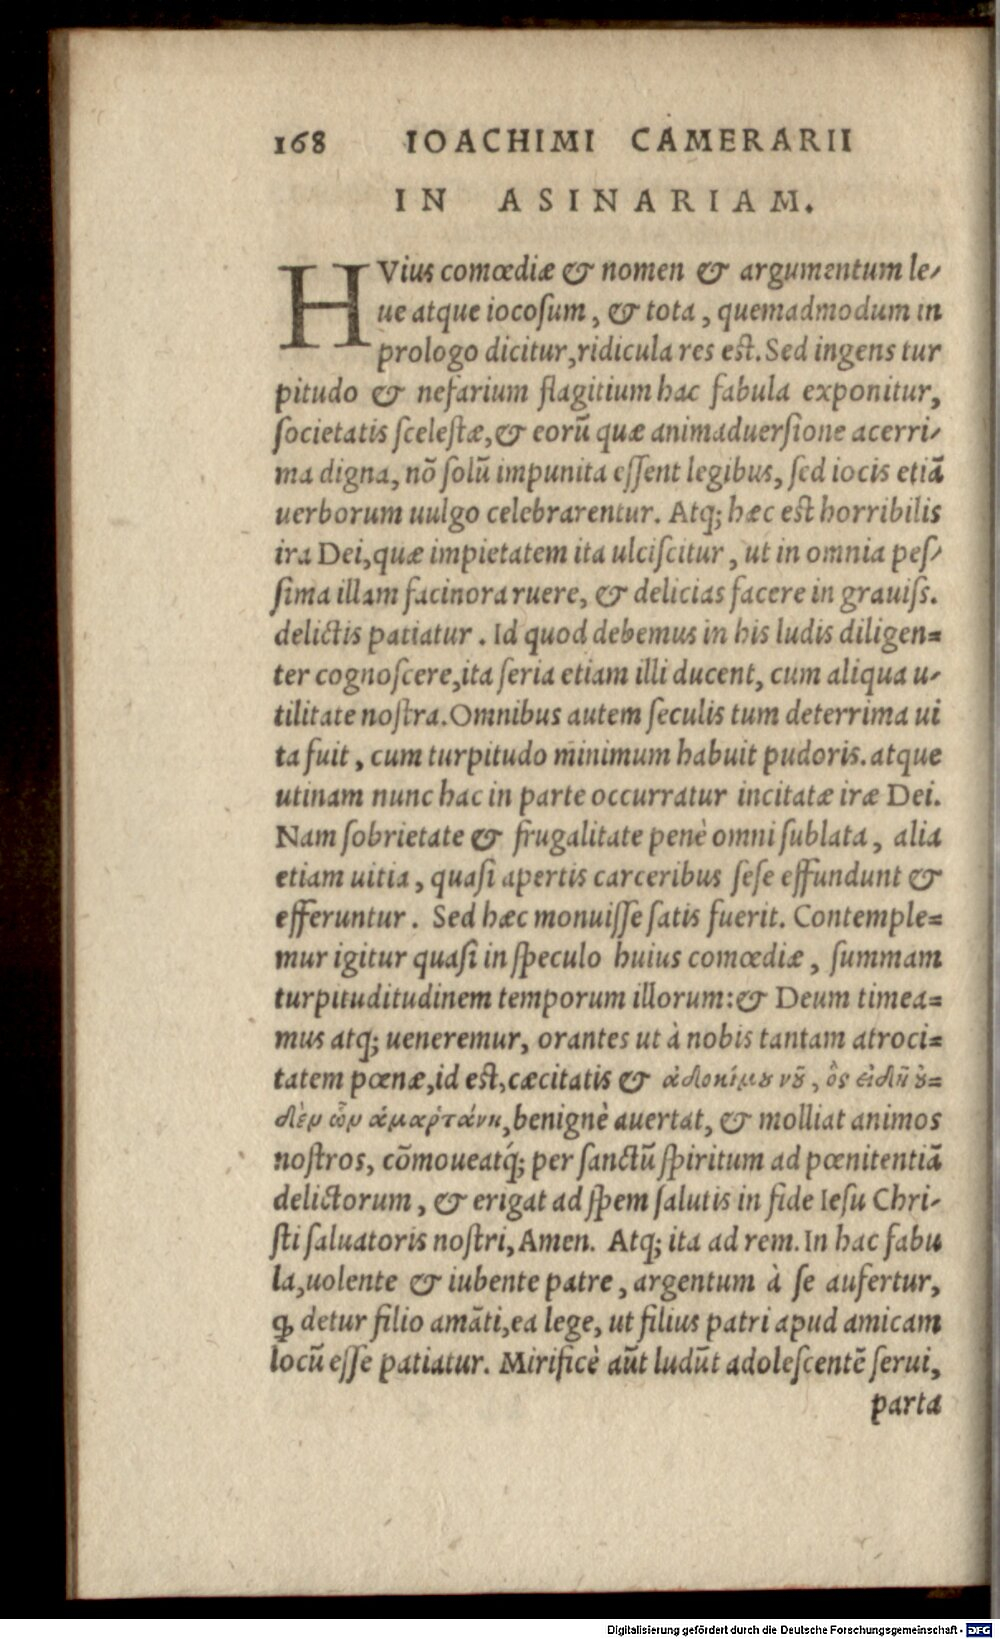 168 IOACHIMI CAMERARII
IN ASINARIAM.
HVius comœdiæ & nomen & argumentum le-
ue atque iocosum, & tota, quemadmodum in
prologo dicitur, ridicula res est. Sed ingens tur
pitudo & nefarium flagitium hac fabula exponitur,
societatis scelestæ, & eorū quæ animaduersione acerri-
ma digna, nō solū impunita essent legibus, sed iocis etiā
uerborum uulgo celebrarentur. Atq; hæc est horribilis
ira Dei, quæ impietatem ita ulciscitur, ut in omnia pes-
sima illam facinora ruere, & delicias facere in grauiss.
delictis patiatur. Id quod debemus in his ludis diligen=
ter cognoscere, ita seria etiam illi ducent, cum aliqua u-
tilitate nostra. Omnibus autem seculis tum deterrima ui
ta fuit, cum turpitudo minimum habuit pudoris. atque
utinam nunc hac in parte occurratur incitatæ iræ Dei.
Nam sobrietate & frugalitate penè omni sublata, alia
etiam uitia, quasi apertis carceribus sese effundunt &
efferuntur. Sed hæc monuisse satis fuerit. Contemple=
mur igitur quasi in speculo huius comœdiæ, summam
turpituditudinem temporum illorum: & Deum timea=
mus atq; ueneremur, orantes ut à nobis tantam atroci=
tatem pœnæ, id est, cæcitatis & ἀδοκίμου νοῦ, ὃς εἰδῇ οὐ=
δὲν ὧν ἁμαρτάνῃ, benignè auertat, & molliat animos
nostros, cōmoueatq́; per sanctū spiritum ad pœnitentiā
delictorum, & erigat ad spem salutis in fide Iesu Chri-
sti saluatoris nostri, Amen. Atq; ita ad rem. In hac fabu
la, uolente & iubente patre, argentum à se aufertur,
ꝗ detur filio amāti, ea lege, ut filius patri apud amicam
locū esse patiatur. Mirificè aūt ludūt adolescentē serui,
parta
Digitalisierung gefördert durch die Deutsche Forschungsgemeinschaft - DFG